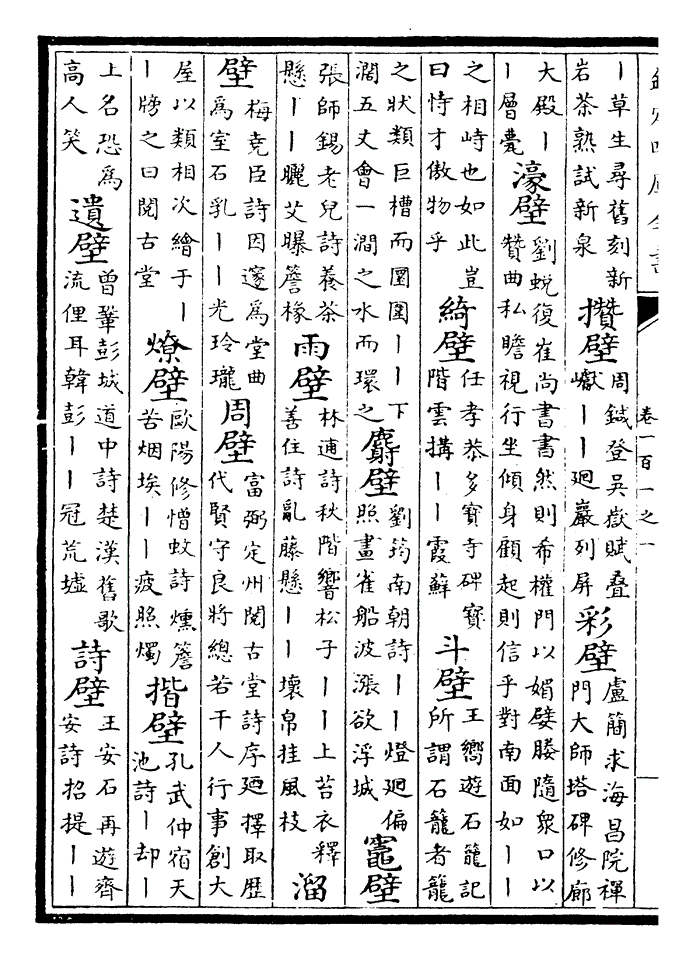 欽定四庫全書
卷一百一之一
｜草生尋舊刻新
岩茶熟試新泉
攢壁
周鍼登吳嶽賦叠
巘｜｜廻巖列屏
彩壁
盧簡求海昌院禪
門大師塔碑修廊
大殿｜
｜層甍
濠壁
劉蛻復崔尚書書然則希權門以媚嬖媵隨衆口以
贊曲私瞻視行坐傾身顧起則信乎對南面如｜｜
之相峙也如此豈
曰恃才傲物乎
綺壁
任孝恭多寳寺碑寳
階雲搆｜｜霞蘇
斗壁
王嚮遊石籠記
所謂石籠者籠
之狀類巨槽而圜圍｜｜下
濶五丈會一澗之水而環之
麝壁
劉筠南朝詩｜｜燈廻偏
照畫雀船波漲欲浮城
竈壁
張師錫老兒詩養茶
懸｜｜曬艾曝簷椽
雨壁
林逋詩秋階響松子｜｜上苔衣釋
善住詩亂藤懸｜｜壞帛挂風枝
溜
壁
梅堯臣詩因邃為堂曲
為室石乳｜｜光玲瓏
周壁
富弼定州閱古堂詩序廼擇取歴
代賢守良將總若干人行事創大
屋以類相次繪于｜
｜牓之曰閱古堂
燎壁
歐陽修憎蚊詩燻簷
苦烟埃｜｜疲照燭
揩壁
孔武仲宿天
池詩｜却｜
上名恐為
高人笑
遺壁
曾鞏彭城道中詩楚漢舊歌
流俚耳韓彭｜｜冠荒墟
詩壁
王安石再遊齊
安詩招提｜｜